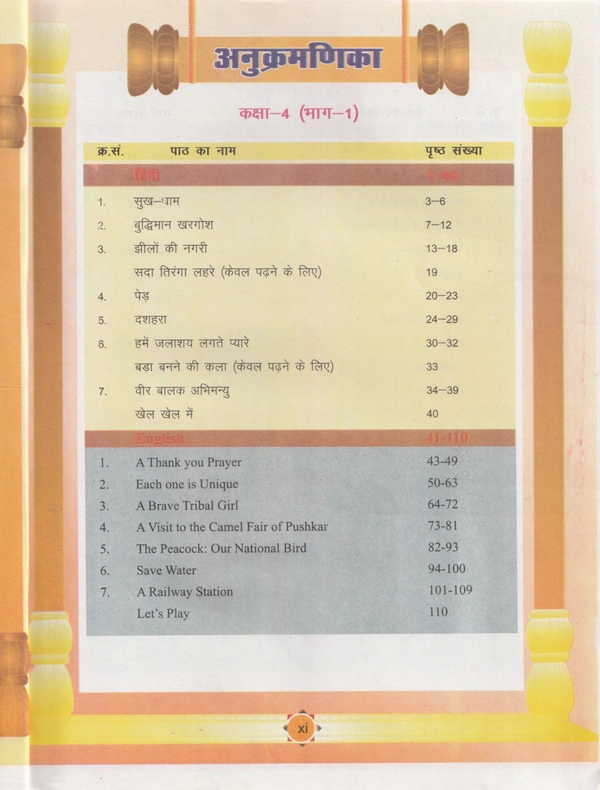 अनुक्रमणिका
कक्षा–4 (भाग–1)
क्र.सं. पाठ का नाम पृष्ठ संख्या
हिंदी
1. सुख–धाम 3–6
2. बुद्धिमान खरगोश 7–12
3. झीलों की नगरी 13–18
सदा तिरंगा लहरे (केवल पढ़ने के लिए) 19
4. पेड़ 20–23
5. दशहरा 24–29
6. हमें जलाशय लगते प्यारे 30–32
बड़ा बनने की कला (केवल पढ़ने के लिए) 33
7. वीर बालक अभिमन्यु 34–39
खेल खेल में 40
English 41-110
1. A Thank you Prayer 43-49
2. Each one is Unique 50-63
3. A Brave Tribal Girl 64-72
4. A Visit to the Camel Fair of Pushkar 73-81
5. The Peacock: Our National Bird 82-93
6. Save Water 94-100
7. A Railway Station 101-109
Let's Play 110
xi